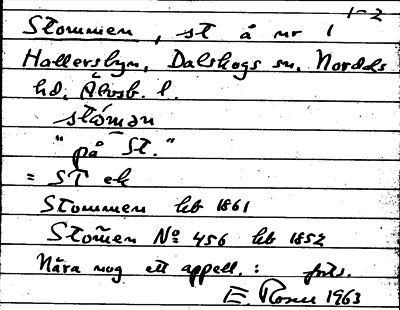 1-2
Stommen, st å nr 1
Hallersbyn, Dalskogs sn. Nordals
hd. Älvsb. l.
stómən
"på St."
= ST ek
Stommen hb 1861
Stom̃en No 456 hb 1852
Nära nog ett appell. : forts.
E. Rosen 1963